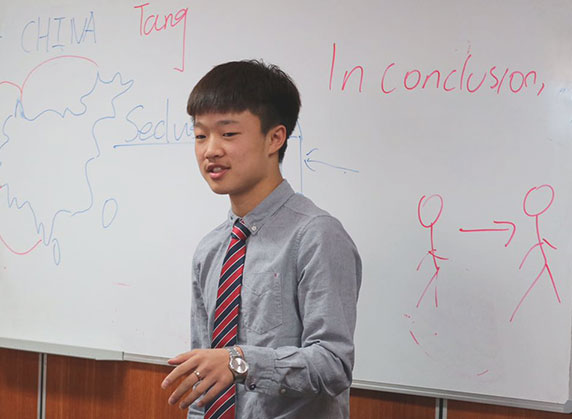 CHINA
Tang
In conclusion,